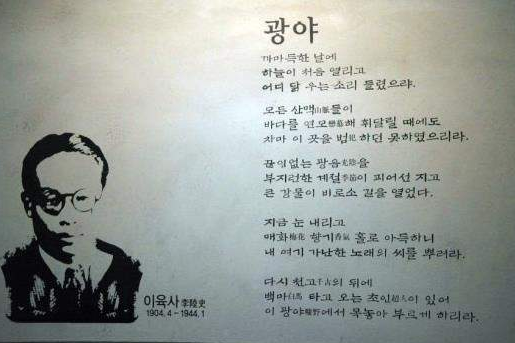 광야
까마득한 날에
하늘이 처음 열리고
어디 닭 우는 소리 들렸으랴.
모든 산맥山脈들이
바다를 연모戀慕해 휘달릴 때에도
차마 이 곳을 범犯하던 못하였으리라.
끊임없는 광음光陰을
부지런한 계절季節이 피어선 지고
큰 강물이 비로소 길을 열었다.
지금 눈 내리고
매화梅花 향기香氣 홀로 아득하니
내 여기 가난한 노래의 씨를 뿌려라.
다시 천고千古의 뒤에
백마白馬 타고 오는 초인超人이 있어
이 광야曠野에서 목놓아 부르게 하리라.
이육사 李陸史
1904. 4 ~ 1944. 1